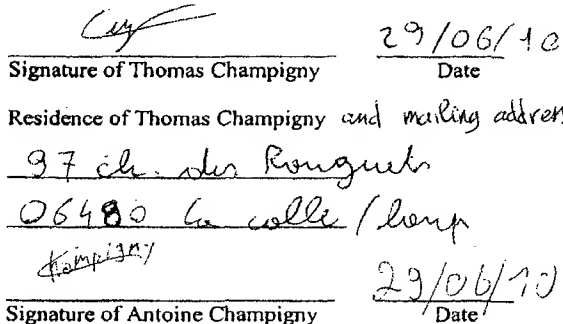 29/06/10
Signature of Thomas Champigny Date
Residence of Thomas Champigny and mailing address
97 ch. des Rouguets
06480 La colle / loup
Champigny
29/06/10
Signature of Antoine Champigny Date